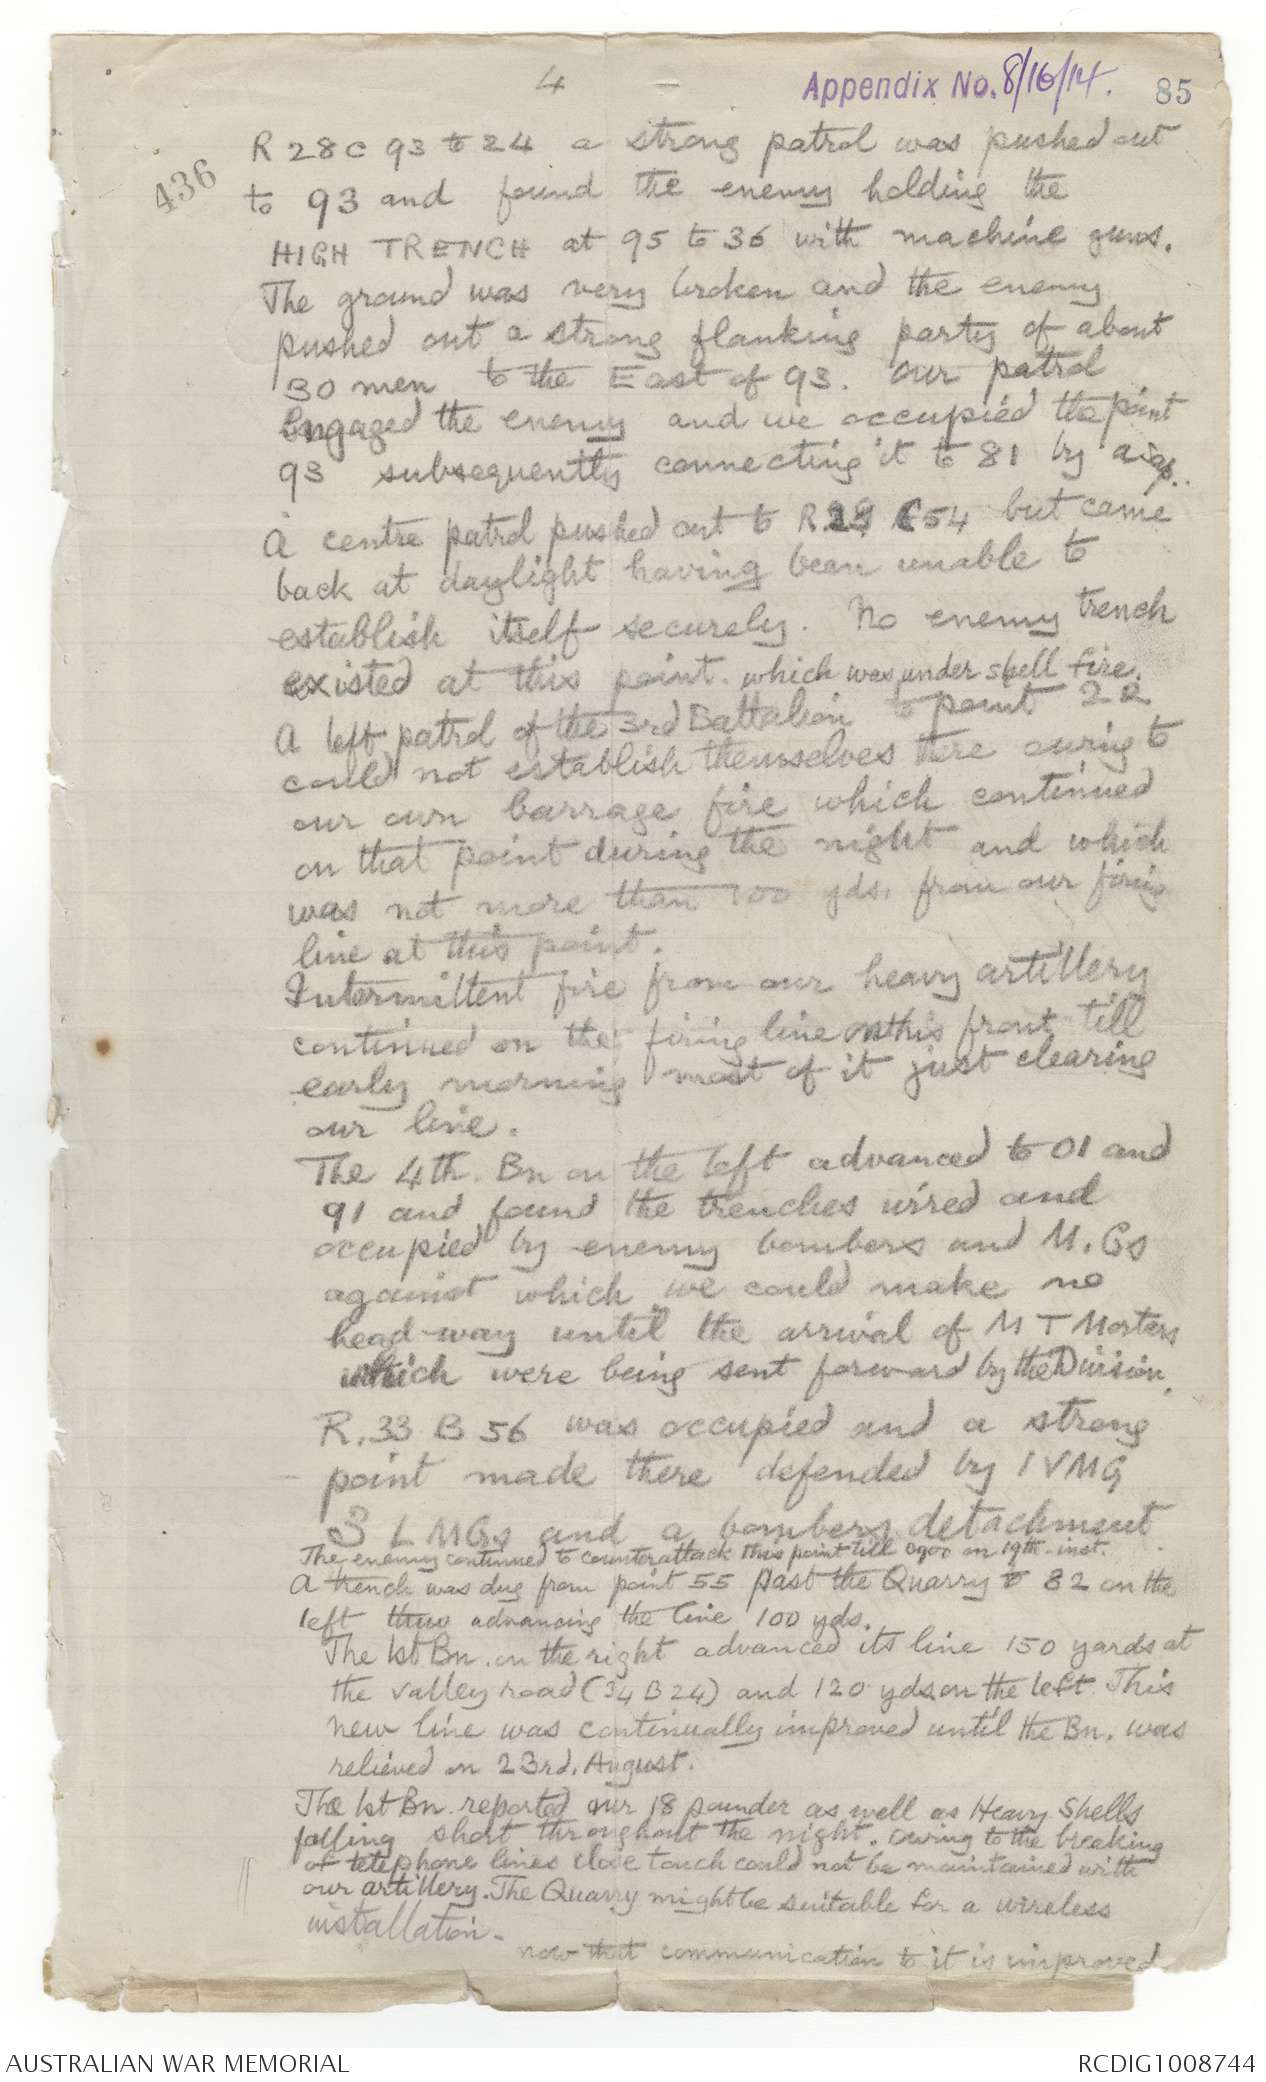 4
Appendix No. 8/16/14.
85
436
R 28 C 93 to 24 a strong patrol was pushed out
to 93 and found the enemy holding the
HIGH TRENCH at 95 to 36 with machine guns.
The ground was very broken and the enemy
pushed out a strong flanking party of about
30 men to the East of 93. Our patrol
engaged the enemy and we occupied the point
93 subsequently connecting it to 81 by a
A centre patrol pushed out to R 28 C 54 but came
back at daylight having been unable to
establish itself securely. No enemy trench
existed at this point. which was under shell fire.
A left patrol of the 3rd Battalion to point 22
could not establish themselves there owing to
our own barrage fire which continued
on that point during the night and which
was not more than 100 yds. from our firing
line at this point.
Intermittent fire from our heavy artillery
continued on the firing line on this front till
early morning most of it just clearing
our line.
The 4th. Bn on the left advanced to 01 and
91 and found the trenches wired and
occupied by enemy bombers and M.Gs
against which we could make no
head-way until the arrival of M T Mortars
which were being sent forward by the Division.
R. 33 B 56 was occupied and a strong
point made there defended by 1 VMG
3 L MGs and a bombers detachment.
The enemy continued to counterattack this point till 0900 on 19th inst.
A trench was dug from point 55 past the Quarry to 82 on the
left thus advancing the line 100 yds.
The 1st Bn. on the right advanced its line 150 yards at
the valley road (34 B 24) and 120 yds. on the left. This
new line was continually improved until the Bn. was
relieved on 23rd. August.
The 1st Bn. reported our 18 pounder as well as Heavy Shells
falling short throughout the night. owing to the breaking
of telephone lines close touch could not be maintained with
our artillery. The Quarry might be suitable for a wireless
installation.
now that communication to it is improved
AUSTRALIAN WAR MEMORIAL
RCDIG1008744